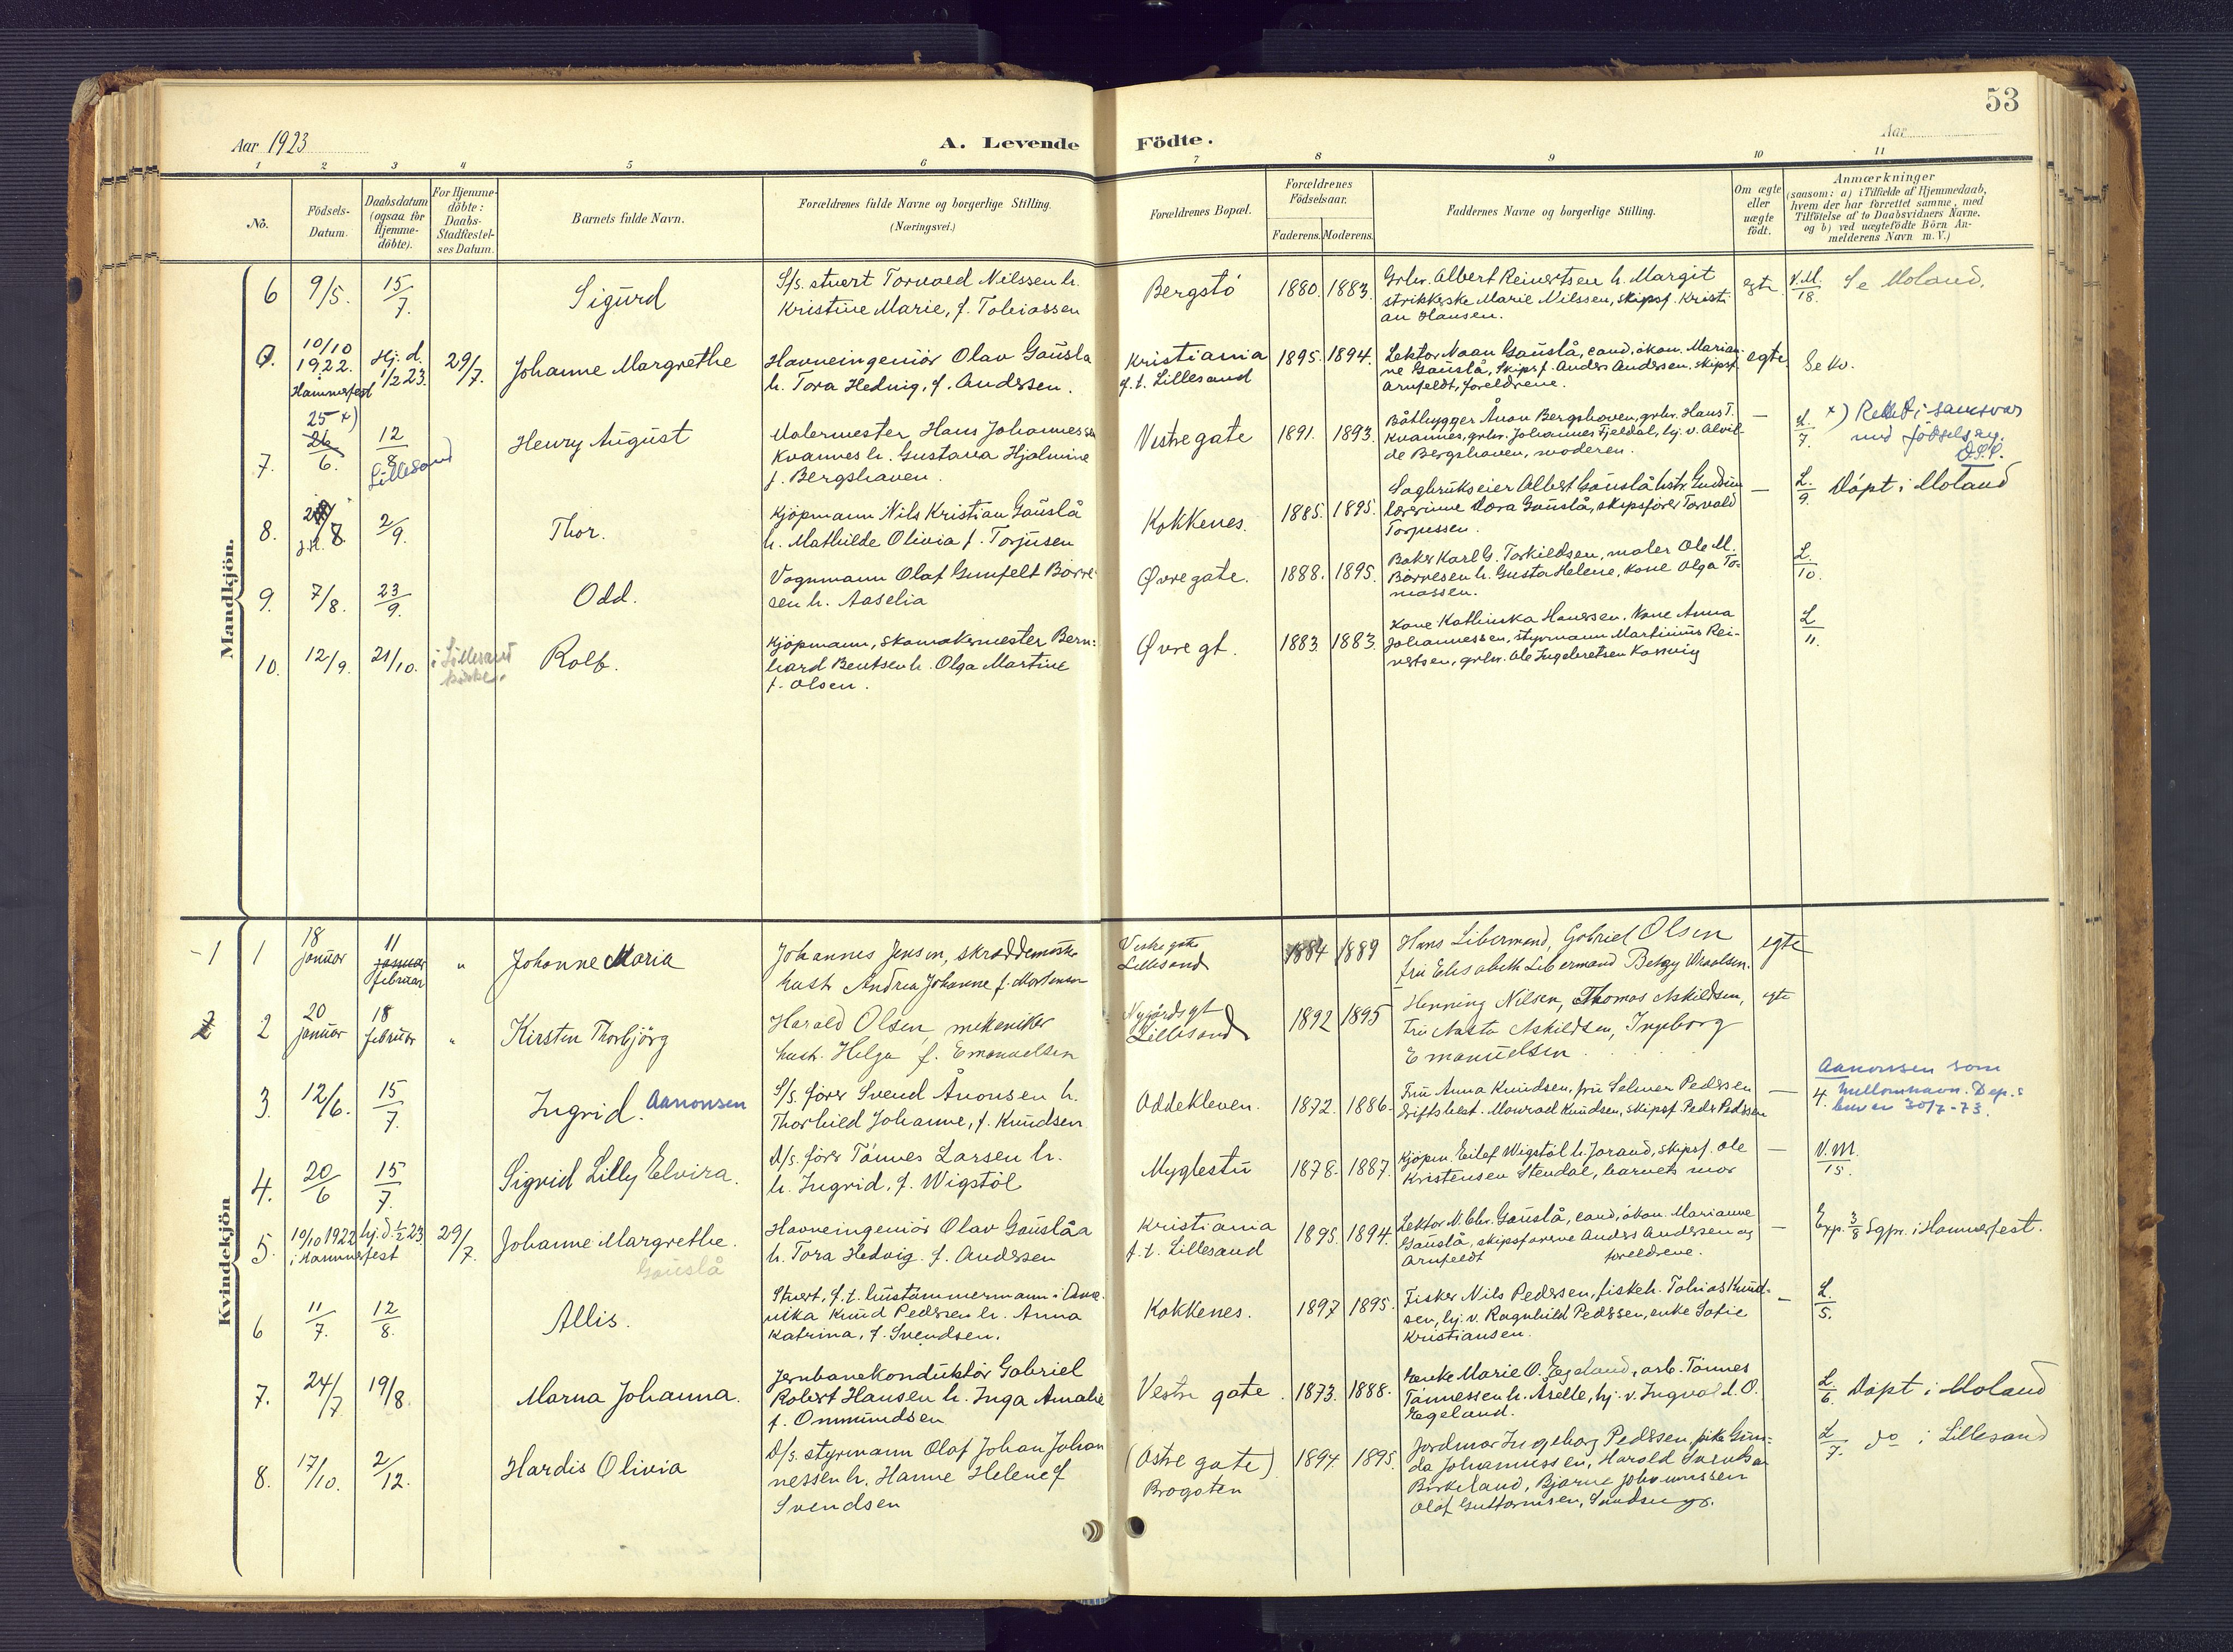 53
Aar 1923
A. Levende
Födte.
Aar
1 2 3 4 5 6 7 8 9 10 11
No.
Födsels-
Datum.
Daabsdatum
(ogsaa for
Hjemme-
döbte).
For Hjemme-
döbte:
Daabs-
Stadfæstel-
ses Datum.
Barnets fulde Navn.
Forældrenes fulde Navne og borgerlige Stilling.
(Næringsvei.)
Forældrenes Bopæl.
Forældrenes
Födselsaar.
Faderens. Moderens.
Faddernes Navne og borgerlige Stilling.
Om ægte
eller
uægte
födt.
Anmærkninger
(saasom: a) i Tilfælde af Hjemmedaab,
hvem der har forrettet samme, med
Tilföielse af to Daabsvidners Navne.
og b) ved uægtefödte Börn An-
melderens Navn m. V.)
Mandkjön.
6
9/5.
15/7.
Sigurd
S/s. stuert Torvald Nilssen h.
Kristine Marie, f. Tobiassen
Bergstö
1880. 1883.
Grbr. Albert Reinertsen h. Margit
strikkerske Marie Nilssen, skipsf. Kristi-
an Hansen.
egte
V.M. 18.
Se Moland.
10/10
1922.
Hammerfest
Hj. d.
1/2 23.
29/7.
Johanne Margrethe
Havneingeniör Olav Gauslå
h. Tora Hedvig, f. Andersen.
Kristiania
f.t. Lillesand
1895. 1894.
Lektor Gauslå, cand. ökon. Marian-
ne Gauslå, Skipsf. Anders Andersen, skipsf.
Arnfeldt, foreldrene.
egte.
Se kv.
7.
25 x)
26
6.
12/8
Lillesand
Henry August
Malermester Hans Johannessen
Kvannes h. Gustava Hjalmine
f. Bergshaven.
Vestregate
1891. 1893.
Båtbygger Ånon Bergshaven, grbr. Hans T.
Kvannes, grbr. Johannes Fjeldal, hj. v. Alvil-
de Bergshaven, moderen.
—
L. 7.
x) Rettet i samsvar
med födselsreg.
8.
8
2/9.
Thor.
Kjöpmann Nils Kristian Gauslå
h. Mathilde Olivia f. Torjusen
Kokkenes.
1885. 1895.
Sagbrukseier Albert Gauslå hstr Gudrun
lærerinne Dora Gauslå, skipsförer Torvald
Torjussen.
—
L. 9.
Döpt i Moland
9.
7/8.
23/9.
Odd.
Vognmann Olaf Gunfelt Börre-
sen h. Aaselia
Øvregate.
1888. 1895.
Baker Karl G. Torkildsen, maler Ole M.
Börresen h. Gusta Helene, kone Olga To-
massen.
L. 10.
10.
12/9.
21/10.
i Lillesand
kirke.
Rolf.
Kjöpmann, skomakermester Bern-
hard Bentsen h. Olga Martine
f. Olsen.
Øvre gt.
1883. 1883.
Kone Kathinka Hanssen. Kone Anna
Johannessen, styrmann Martinius Rei-
nertsen, grbr. Ole Ingebretsen Kosvig
L 11.
Kvindekjön
1 1
18
januar
11
januar
februar
"
Johanne Maria
Johannes Jensen, skreddermester
hust. Andrea Johanne f. Mortensen
Vestregate
Lillesand
1884 1889
Hans Libermand, Gabriel Olsen
fru Elisabeth Libermand Betzy
egte
2 2
20
januar
18
februar
"
Kirsten Thorbjörg
Harald Olsen, mekaniker
hust. Helga f. Emanuelsen
Nygårdsgt
Lillesand
1892 1895
Henning Nilsen, Thomas Askildsen,
fru Aasta Askildsen, Ingeborg
Emanuelsen.
egte
3.
12/6.
15/7.
Ingrid. Aanonsen
S/s. förer Svend Ånonsen h.
Thorhild Johanne, f. Knudsen
Oddekleven.
1872. 1886.
Fru Anna Knudsen, fru Selmer Pedersen
Driftsbest. Monrad Knudsen, skipsf. Peder Pedersen
—
4.
Aanonsen som
mellomnavn. Dep.s
brev 30/7-73.
4.
20/6
15/7.
Sigrid Lilly Elvira.
D/s. förer Tönnes Larsen h.
h. Ingrid, f. Wigstöl
Myglestu
1878. 1887.
Kjöpm. Eilef Wigstöl h. Jorand, skipsf. Ole
Kristensen Stendal, barnets mor
—
V.M. 15.
5.
10/10 1922
i Hammerfest
hj. d. 1/2 23
29/7.
Johanne Margrethe.
Gauslå
Havneingeniör Olav Gauslåa
h. Tora Hedvig. f. Andersen
Kristiania
f.t. Lillesand
1895. 1894.
Lektor N. Chr. Gauslå, cand. ökon. Marianne
Gauslå, skipsförerne Anders Andersen og
Arnfeldt foreldrene.
—
Exp. 3/8 Sgpr. i Hammerfest.
6
11/7.
12/8.
Allis.
Stuert, f.t. hustömmermann i Ame-
rika Knud Pedersen h. Anna
Katrina, f. Svendsen.
Kokkenes.
1897 1895.
Fisker Nils Pedersen, fiskeh. Tobias Knud-
sen, hj. v. Ragnhild Pedersen, enke Sofie
Kristiansen.
—
L. 5.
7.
24/7
19/8.
Marna Johanna.
Jernbanekonduktör Gabriel
Robert Hansen h. Inga Amalie
f. Ommundsen
Vestre gate.
1873. 1888.
Enke Marie O. Egeland, arb. Tönnes
Tönnessen h. Aselle, hj. v. Ingvald. O.
Egeland.
L 6.
Döpt i Moland
8.
17/10.
2/12.
Hardis Olivia
D/s. styrmann Olaf Johan Johan
nessen h. Hanne Helene f
Svendsen
(Östre gate)
Brogaten
1894 1895.
Jordmor Ingeborg Pedersen, pike Gun-
da Johannessen, Harold Svendsen
Birkeland, Bjarne Johannessen
Olaf Guttormsen,
L 7.
do i Lillesand